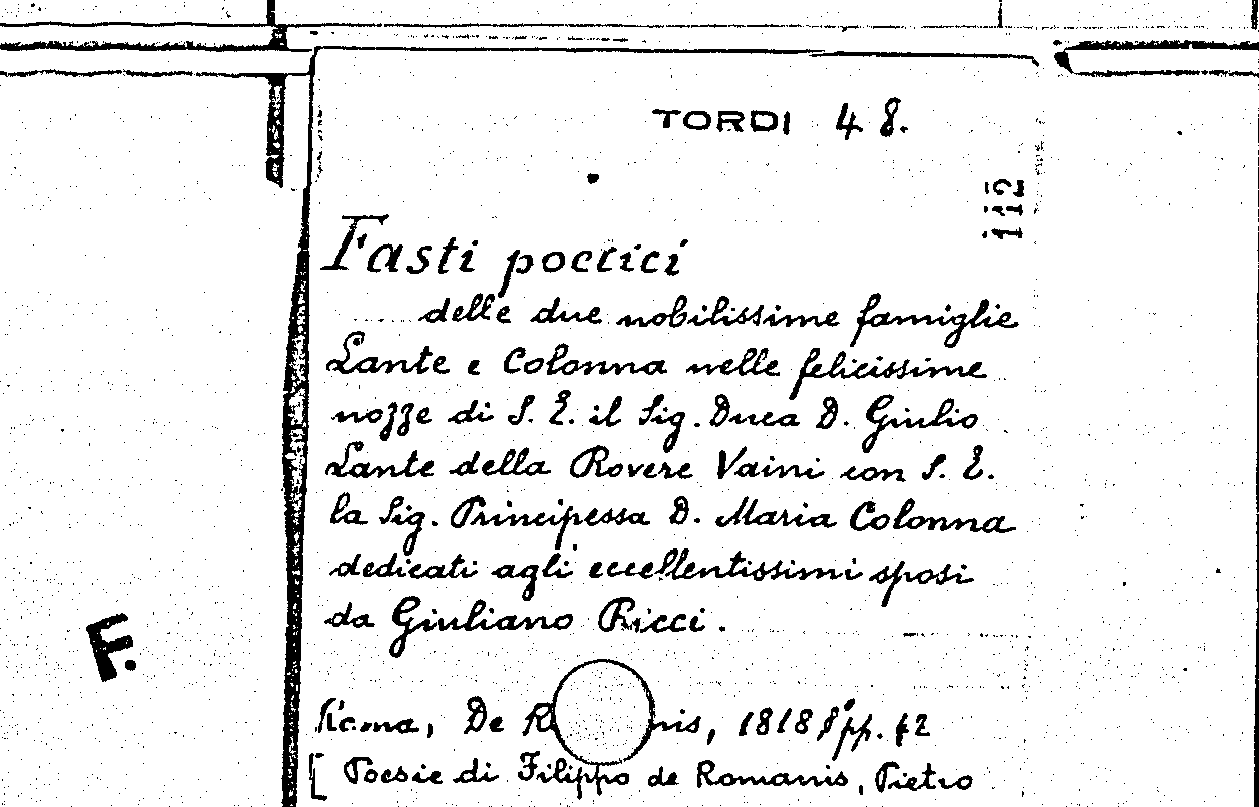 TORDI 48.
112
Fasti poetici
delle due nobilissime famiglie
Lante e Colonna nelle felicissime
nozze di S. E. il Sig. Duca D. Giulio
Lante della Rovere Vaini con S. E.
la Sig. Principessa D. Maria Colonna
dedicati agli eccellentissimi sposi
da Giuliano Ricci.
F.
Roma, De R nis, 1818 8° pp.
[ Poesie di Filippo de Romanis, Pietro